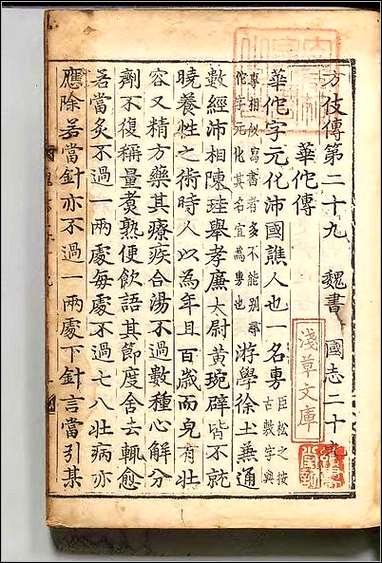 方伎傳第二十九 魏書 國志二十九
華佗傳
華佗字元化沛國譙人也一名旉臣松之按古敷字與
專相似寫書者多不能別尋佗字元化其名宜為旉也游學徐土兼通
數經沛相陳珪舉孝廉太尉黃琬辟皆不就
曉養性之術時人以為年且百歲而貌有壯
容又精方藥其療疾合湯不過數種心解分
劑不復稱量煮熟便飲語其節度舍去輒愈
若當灸不過一兩處每處不過七八壯病亦
應除若當針亦不過一兩處下針言當引某
淺草文庫